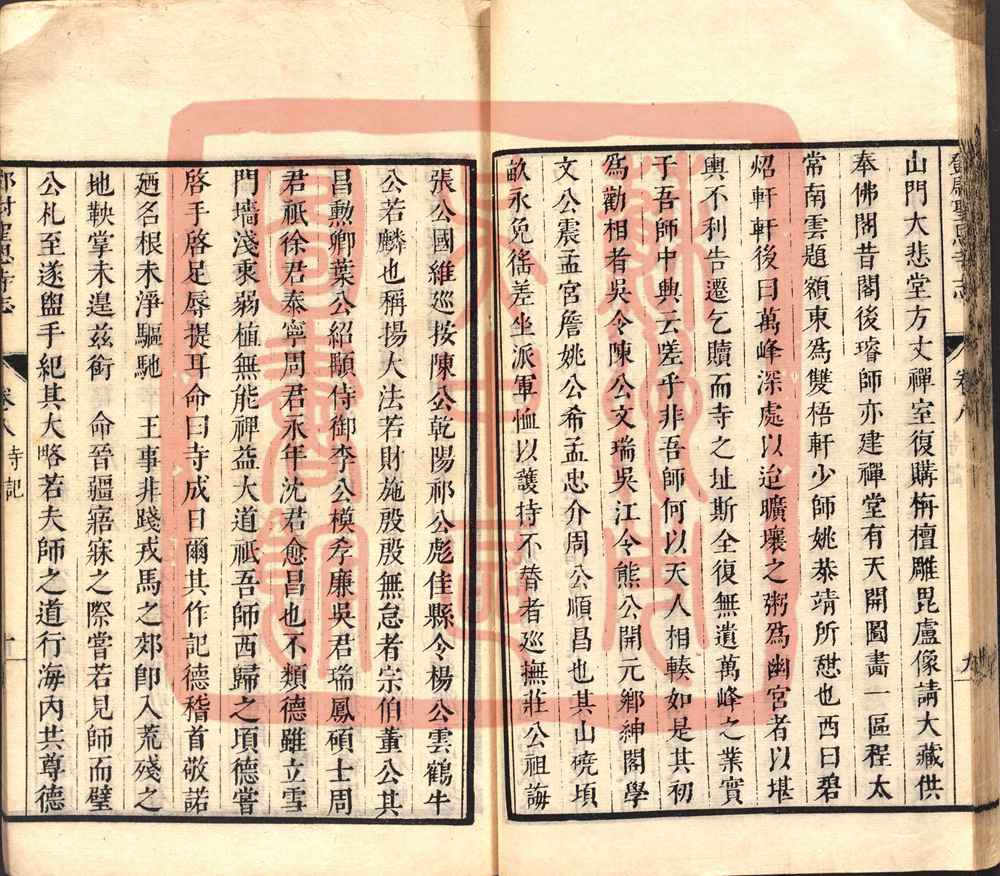 山門大悲堂方丈禪室復購栴檀雕毘盧像請大藏供
奉佛閣昔閣後璿師亦建禪堂有天開圖畵一區程太
常南雲題額東為雙梧軒少師姚恭靖所憇也西曰碧
炤軒軒後曰萬峰深處以迨曠壤之粥為幽宮者以堪
輿不利告遷乞贖而寺之址斯全復無遺萬峰之業實
于吾師中興云嗟乎非吾師何以天人相輳如是其初
為勸相者吳令陳公文瑞吳江令熊公開元鄉紳閣學
文公震孟宮詹姚公希孟忠介周公順昌也其山磽頃
畝永免徭差坐派軍恤以護持不替者巡撫莊公祖誨
卷八
九
張公國維巡按陳公乾陽祁公彪佳縣令楊公雲鶴牛
公若麟也稱揚大法若財施殷殷無怠者宗伯董公其
昌勲卿葉公紹顒侍御李公模孝廉吳君瑞鳳碩士周
君祇徐君泰寧周君永年沈君愈昌也不類德雖立雪
門墻淺乘弱植無能裨益大道祇吾師西歸之頃德嘗
啓手啓足辱提耳命曰寺成日爾其作記德稽首敬諾
廼名根未淨驅馳 王事非踐戎馬之郊卽入荒殘之
地鞅掌未遑茲銜 命晉疆寤寐之際嘗若見師而璧
公札至遂盥手紀其大略若夫師之道行海内共尊德
聖恩寺志
卷八 寺記
十